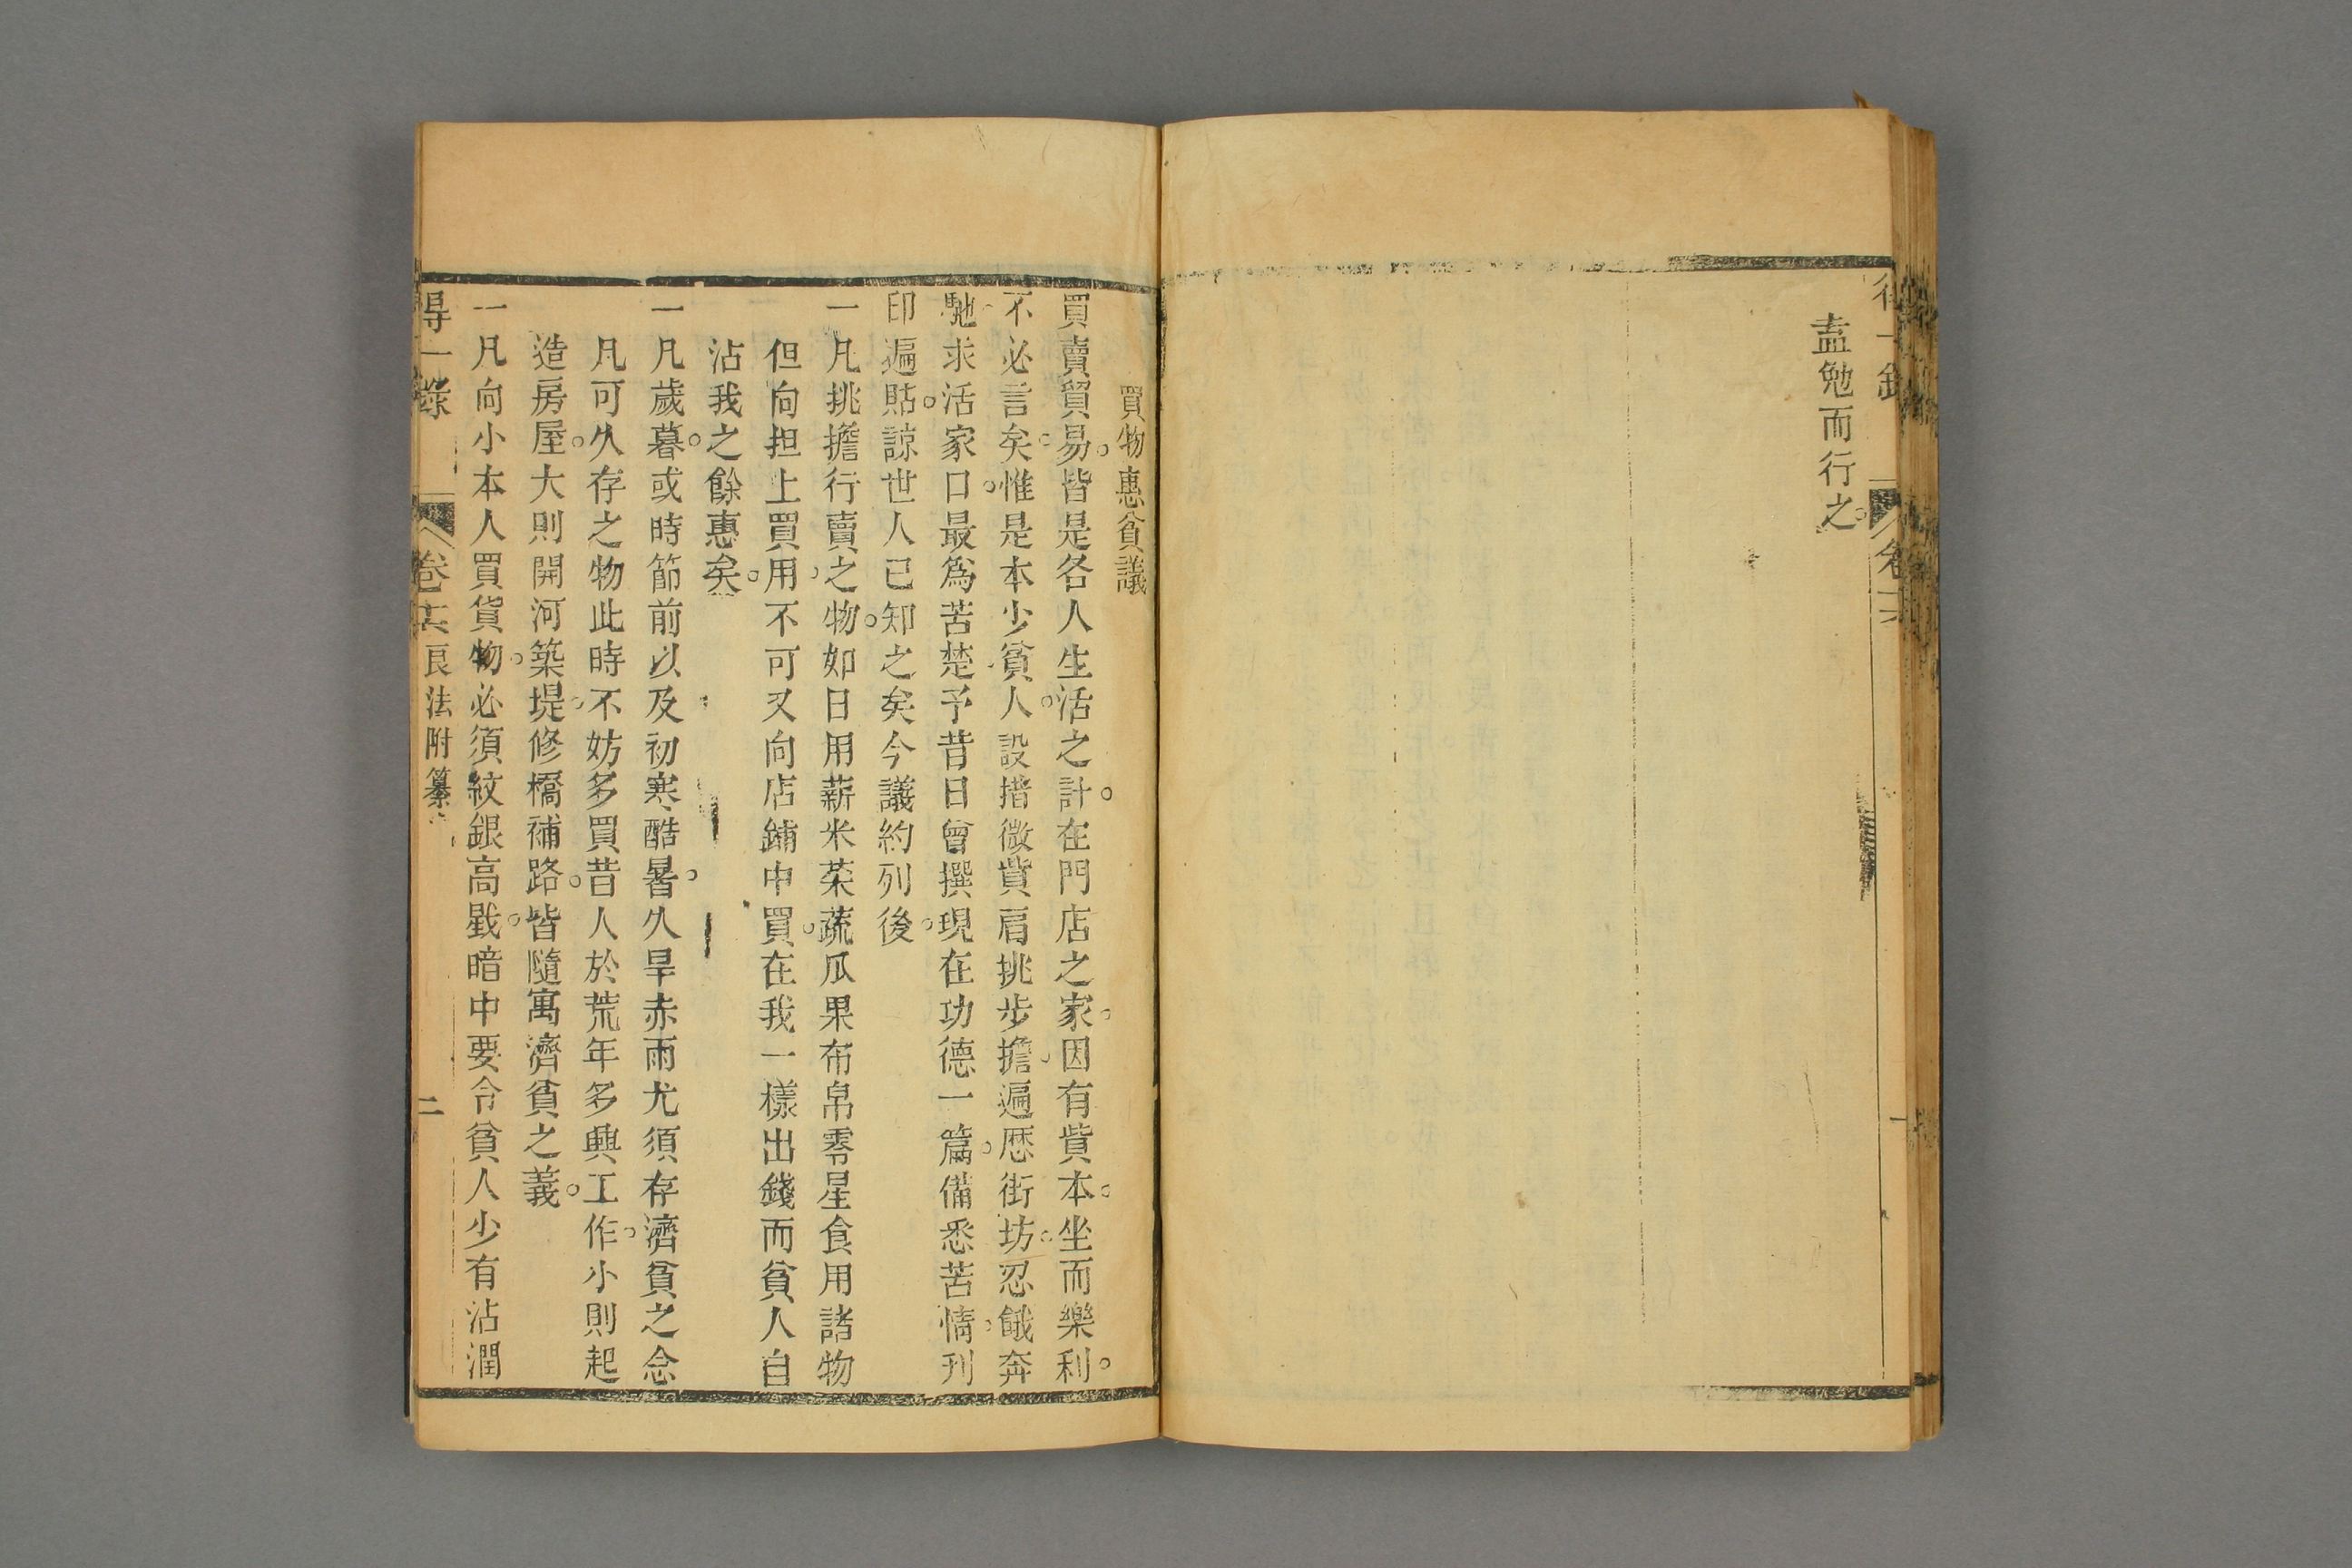 得一錄 卷十六 一
盍勉而行之
買物惠貧議
買賣貿易皆是各人生活之計在門店之家因有貲本坐而樂利
不必言矣惟是本少貧人設措微貲肩挑步擔遍歷街坊忍餓奔
馳求活家口最爲苦楚予昔日曾撰現在功德一篇備悉苦情刊
印遍貼諒世人已知之矣今議約列後
一凡挑擔行賣之物如日用薪米菜蔬瓜果布帛零星食用諸物
但向担上買用不可又向店鋪中買在我一樣出錢而貧人自
沾我之餘惠矣
一凡歲暮或時節前以及初寒酷暑久旱赤雨尤須存濟貧之念
凡可久存之物此時不妨多買昔人於荒年多興工作小則起
造房屋大則開河築堤修橋補路皆隨寓濟貧之義
一凡向小本人買貨物必須紋銀高戥暗中要令貧人少有沾潤
得一錄 卷十六 良法附纂 二